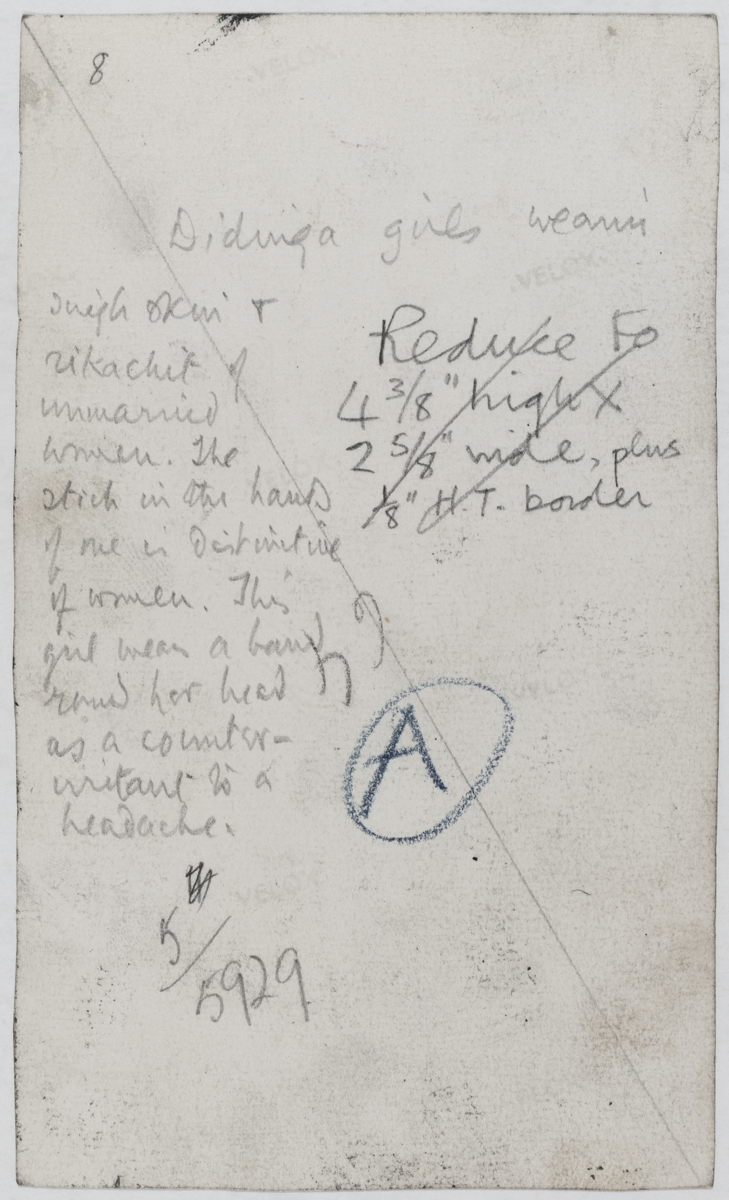 8
VELOX
Didinga girls wearin
VELOX
skin &
rikachit of
unmarried
women. The
stick in the hand
of one is distinctive
of women. This
girl wears a band
round her head
as a counter-
irritant to a
headache.
Reduce to
4 3/8" high x
2 5/8" wide, plus
1/8" H.T. border
?
A
VELOX
VELOX
5/
5929